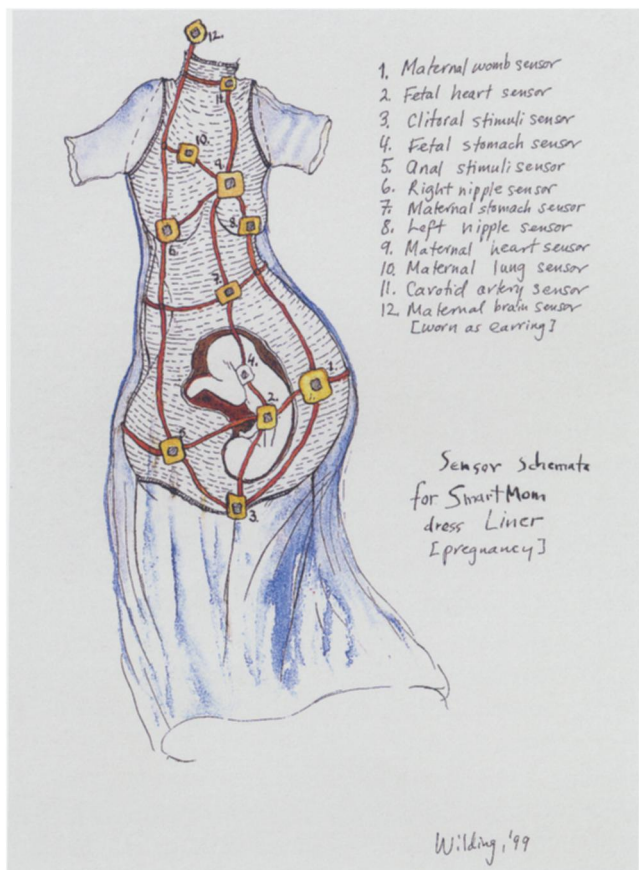 12.
11.
10.
9.
8.
6.
5.
4.
1.
2.
5
3.
1. Maternal womb sensor
2 Fetal heart sensor
3. Clitoral stimuli sensor
4. Fetal stomach sensor
5. Anal stimuli sensor
6. Right nipple sensor
7. Maternal stomach sensor
8. Left nipple sensor
9. Maternal heart sensor
10. Maternal lung sensor
11. Carotid artery sensor
12 Maternal brain sensor
[worn as earring]
Sensor Schemata
for SmartMom
dress Liner
[pregnancy]
Wilding, '99